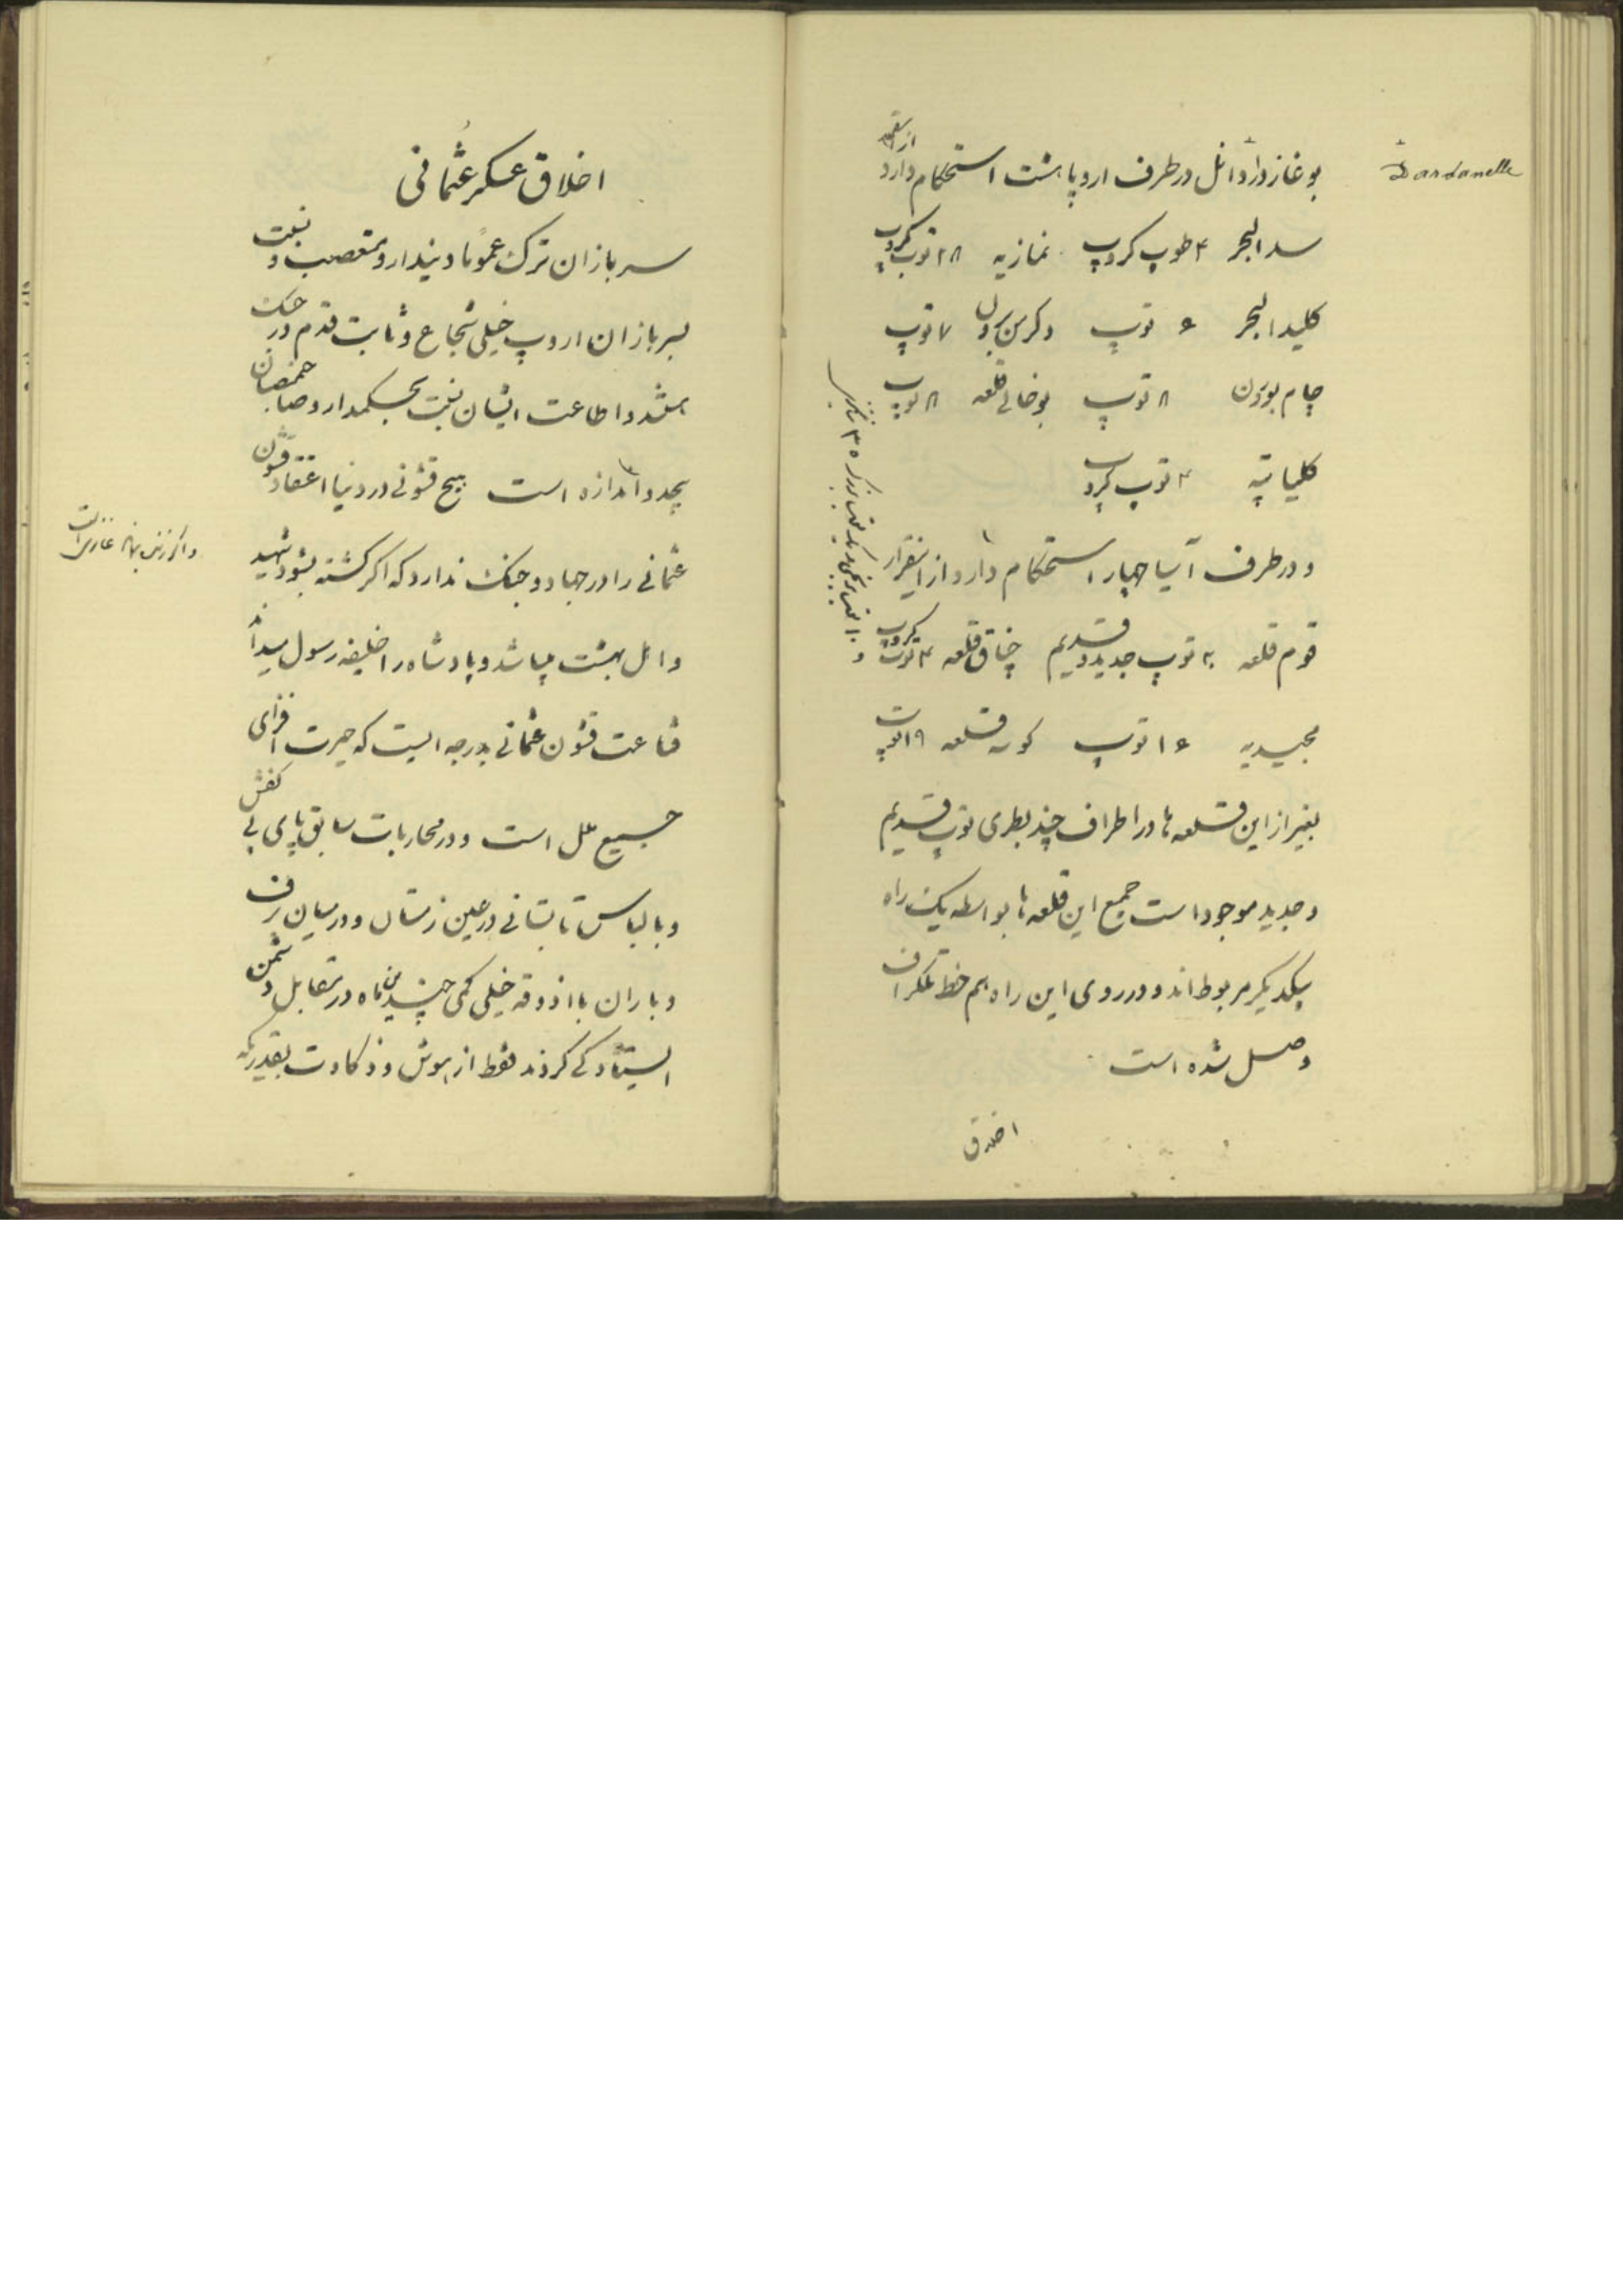 Dardanelle
بوغاز داردانل در طرف اروپا هشت استحکام دارد از اینقرار
سد البحر ۴ طوپ کروپ نمازیه ۲۸ توپ کروپ
کلید البحر ۶ توپ دکرمن برول ۷ توپ
چام بورون ۸ توپ بوخالی قلعه ۸ توپ
کلیا تپه ۴ توپ کروپ
و در طرف آسیا چهار استحکام دارد از اینقرار
قوم قلعه ۲۰ توپ جدید و قدیم چناق قلعه ۴ توپ کروپ
مجیدیه ۱۶ توپ کوسه قلعه ۱۹ توپ
بغیر از این قلعه ها در اطراف چند بطری توپ قدیم
و جدید موجود است جمیع این قلعه ها بواسطه یک راه
بیکدیگر مربوط اند و در روی این راه هم خط تلکراف
وصل شده است
اخلاق
اخلاق عسکر عثمانی
سربازان ترک عموماً دیندار و متعصب و نسبت
بسربازان اروپ خیلی شجاع و ثابت قدم در جنک
هستند و اطاعت ایشان نسبت بحکمدار و صاحبمنصبان
بیحد و اندازه است هیچ قشونی در دنیا اعتقاد قشون
عثمانی را در جهاد و جنک ندارد که اکر کشته بشود شهید
و اهل بهشت میباشد و پادشاه را خلیفه رسول میداند
قناعت قشون عثمانی بدرجه ایست که حیرت افزای
جمیع ملل است و در محاربات سابق پای بی کفش
و با لباس تابستانی در عین زمستان و در میان برف
و باران با اذوقه خیلی کمی چندین ماه در مقابل دشمن
ایستادکی کردند فقط از هوش و ذکاوت بقدریکه